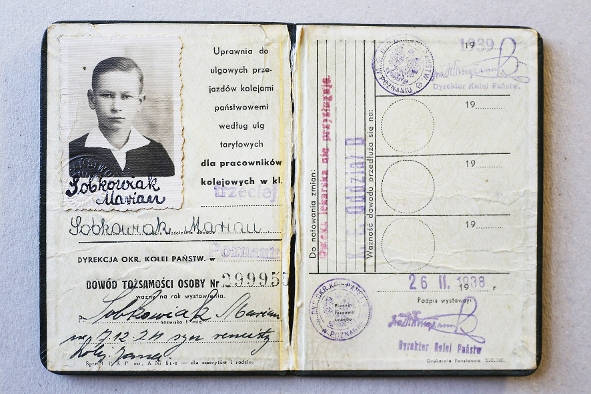 Uprawnia do
ulgowych prze-
jazdów kolejami
państwowemi
według ulg
taryfowych
dla pracowników
kolejowych w kl.
trzeciej
Sobkowiak
Marian
Sobkowiak Marian
DYREKCJA OKR. KOLEI PAŃSTW. w Poznaniu
DOWÓD TOŻSAMOŚCI OSOBY Nr 299955
ważny na rok wystawienia.
P. Sobkowiak Marian
ur. 7.12.24 syn
Do notowania zmian:
Opieka lekarska nie przysługuje.
Oddział B
Ważność dowodu przedłuża się na:
1939
Dyrektor Kolei Państw.
19
19
19
26 II. 1938 r.
Podpis wystawcy:
Dyrektor Kolei Państw
W POZNANIU